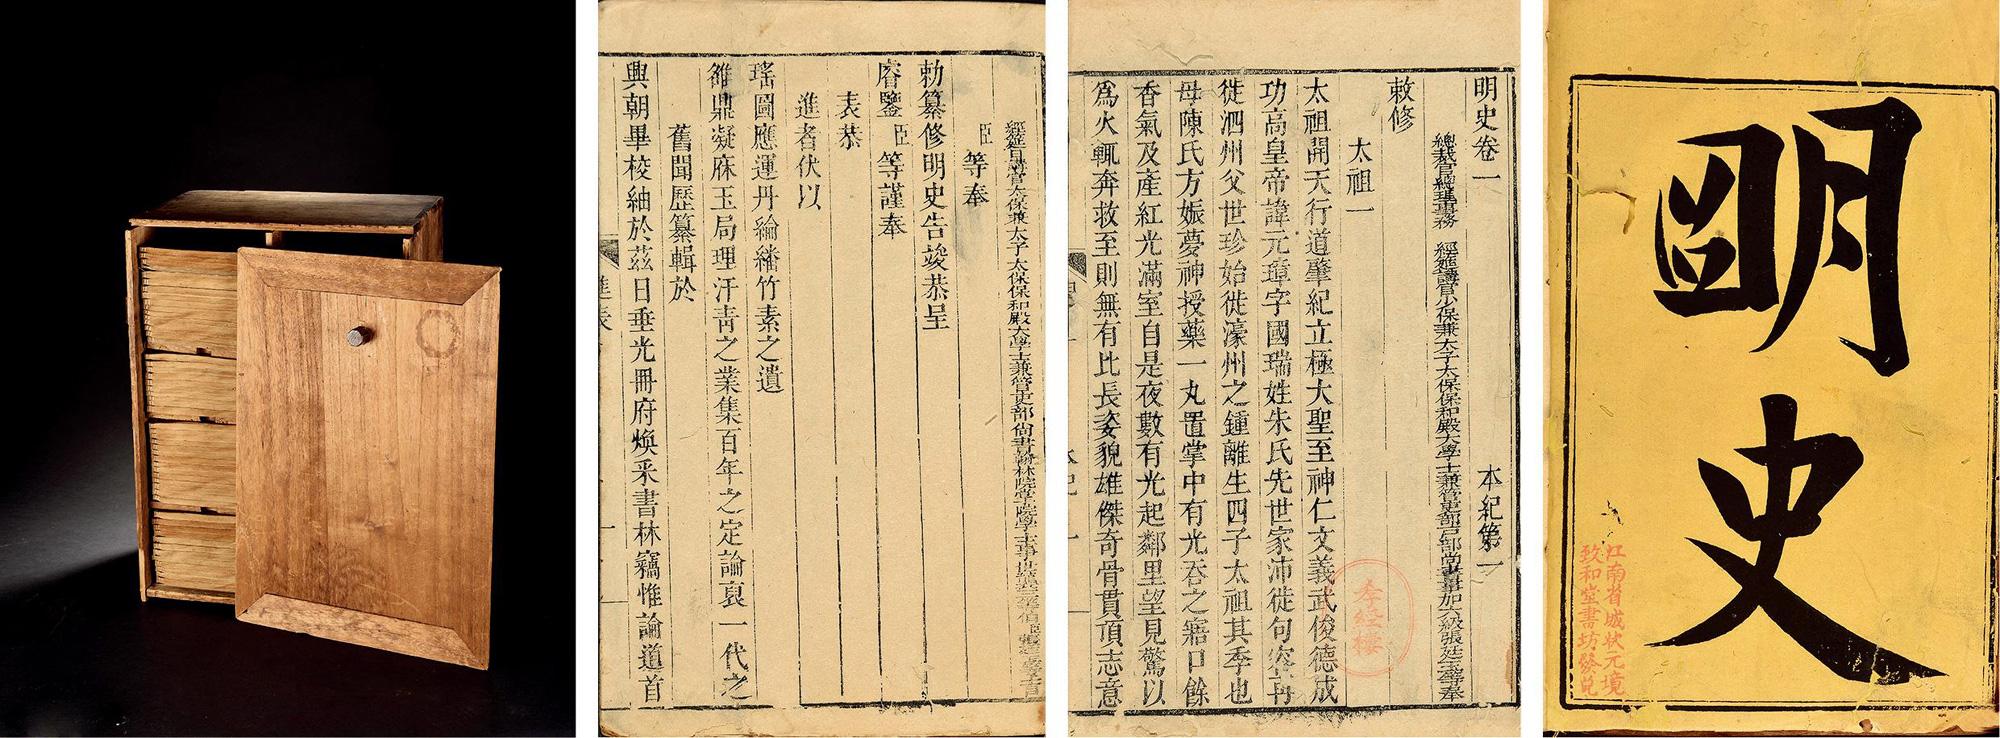 經筵日講官太保兼太子太保保和殿大學士兼管吏部尚書翰林院掌院學士事世襲三等伯臣張廷玉
臣等奉
勅纂修明史告竣恭呈
睿鑒臣等謹奉
表恭
進者伏以
瑤圖應運丹綸繙竹素之遺
雒鼎凝庥玉局理汗青之業集百年之定論裒一代之
舊聞歷纂輯於
興朝畢校紬於茲日垂光冊府煥釆書林竊惟論道首
進表
明史卷一 本紀第一
總裁官總理事務 經筵講官少保兼太子太保保和殿大學士兼管吏部戶部尚書事加六級張廷玉等奉
敕修
太祖一
太祖開天行道肇紀立極大聖至神仁文義武俊德成
功高皇帝諱元璋字國瑞姓朱氏先世家沛徙句容再
徙泗州父世珍始徙濠州之鍾離生四子太祖其季也
母陳氏方娠夢神授藥一丸置掌中有光吞之寤口餘
香氣及產紅光滿室自是夜數有光起鄰里望見驚以
為火輒奔救至則無有比長姿貌雄傑奇骨貫頂志意
明史
江南省城狀元境
致和堂書坊發兌